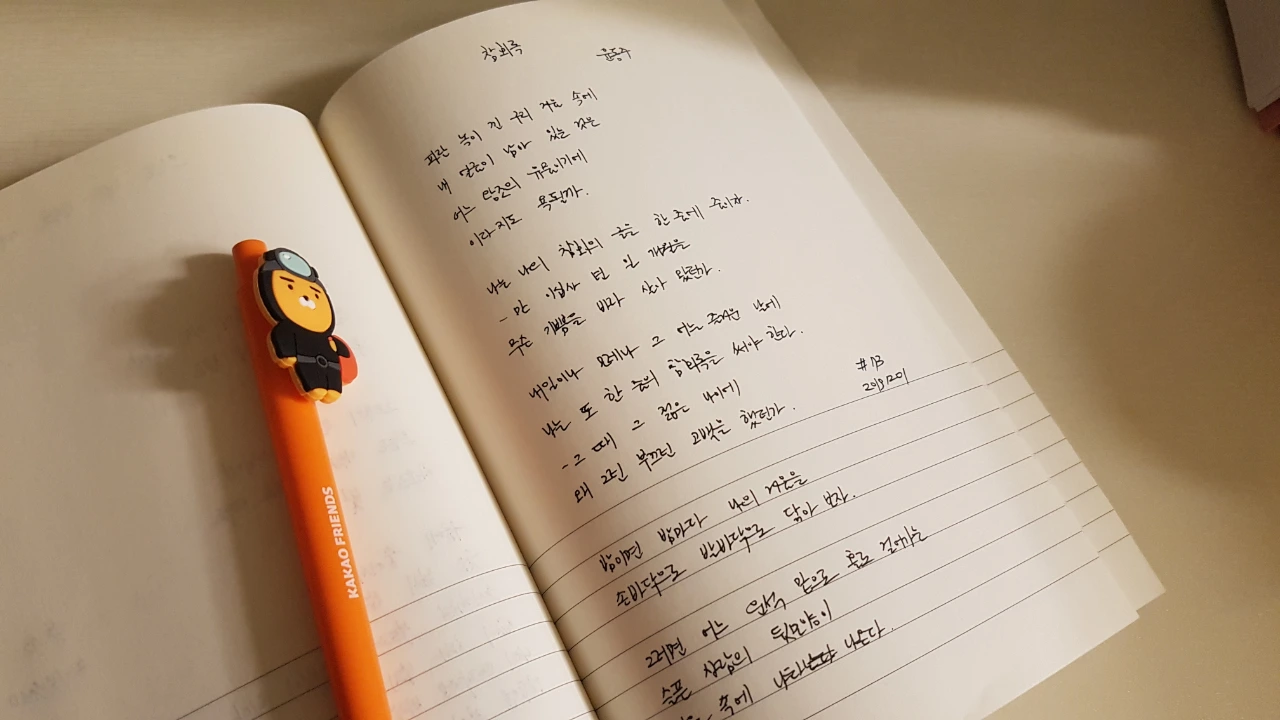 참회록 윤동주
파란 녹이 낀 구리 거울 속에
내 얼굴이 남아 있는 것은
어느 왕조의 유물이기에
이다지도 욕될까.
나는 나의 참회의 글을 한 줄에 줄이자.
- 만 이십사 년 일 개월을
무슨 기쁨을 바라 살아 왔던가.
내일이나 모레나 그 어느 즐거운 날에
나는 또 한 줄의 참회록을 써야 한다.
- 그 때 그 젊은 나이에
왜 그런 부끄런 고백을 했던가.
#13
20191201
밤이면 밤마다 나의 거울을
손바닥으로 발바닥으로 닦아 보자.
그러면 어느 운석 밑으로 홀로 걸어가는
슬픈 사람의 뒷모양이
속에 나타 나온다.
KAKAO FRIENDS